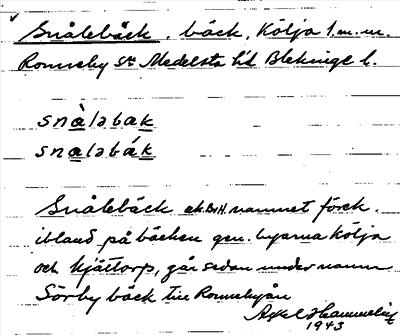 Snålebäck, bäck, Kölja 1. m. m.
Ronneby sn Medelsta hd Blekinge l.
snàləbak
snaləbák
Snålebäck namnet förek.
ibland på bäcken gm. byarna Kölja
och Hjättorp, går sedan under namn
Sörby bäck till Ronnebyån
Axel
1943